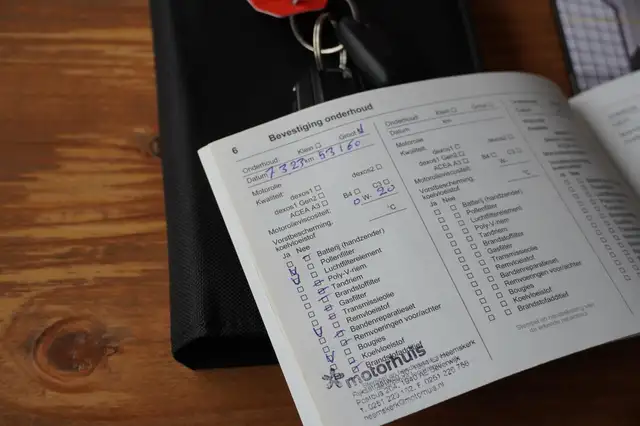 6 Bevestiging onderhoud
Onderhoud: Klein ☐ Groot ☑
Datum 7 3 23 km 53160
Motorolie
Kwaliteit: dexos1 ☐ dexos2 ☐
dexos1 Gen2 ☐ B4 ☐ C3 ☐
ACEA A3 ☐
Motorolieviscositeit: 0 W- 20
Vorstbescherming,
koelvloeistof °C
Ja Nee
Batterij (handzender)
Pollenfilter
Luchtfilterelement
Poly-V-riem
Tandriem
Brandstoffilter
Gasfilter
Transmissieolie
Remvloeistof
Bandenreparatieset
Remvoeringen voor/achter
Bougies
Koelvloeistof
Brandstofadditief
motorhuis
Postbus 204, 1940 AE Beverwijk
heemskerk@motorhuis.nl
Onderhoud: Klein ☐ Groot ☐
Datum km
Motorolie
Kwaliteit: dexos1 ☐
dexos1 Gen2 ☐ B4 ☐ C3 ☐
ACEA A3 ☐
Motorolieviscositeit:
Vorstbescherming,
koelvloeistof °C
Ja Nee
Batterij (handzender)
Pollenfilter
Luchtfilterelement
Poly-V-riem
Tandriem
Brandstoffilter
Gasfilter
Transmissieolie
Remvloeistof
Bandenreparatieset
Remvoeringen voor/achter
Bougies
Koelvloeistof
Brandstofadditief